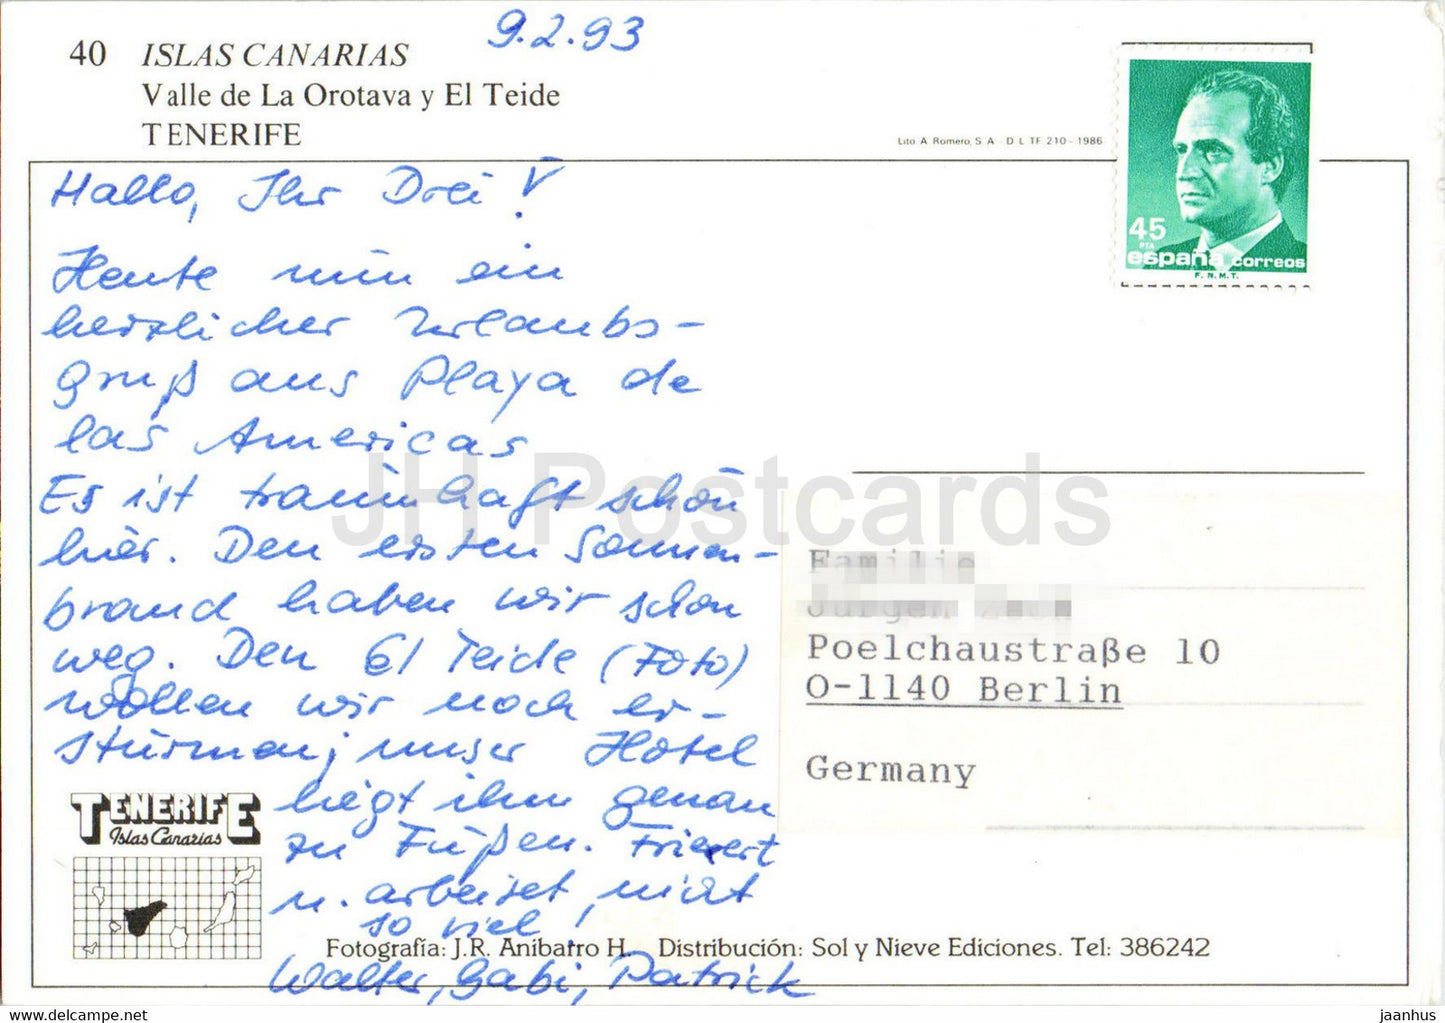 9.2.93
40 ISLAS CANARIAS
Valle de La Orotava y El Teide
TENERIFE
Lito A Romero, S A - D L TF 210 - 1986
45
PTA
españa correos
F.N.M.T.
Hallo, Ihr Drei!
Heute nun ein
herzlicher Urlaubs-
gruß aus Playa de
las Americas
Es ist traumhaft schön
hier. Den ersten Sonnen-
brand haben wir schon
weg. Den El Teide (Foto)
wollen wir noch er-
stürmen; unser Hotel
liegt ihm genau
zu Füßen. Frieert
u. arbeitet, nicht
so viel!
Walter, Gabi, Patrick
JH Postcards
Familie
Jürgen
Poelchaustraße 10
O-1140 Berlin
Germany
TENERIFE
Islas Canarias
Fotografía: J.R. Anibarro H. Distribución: Sol y Nieve Ediciones. Tel: 386242
hipstamp.com/store/jhpostcards
jaanhus